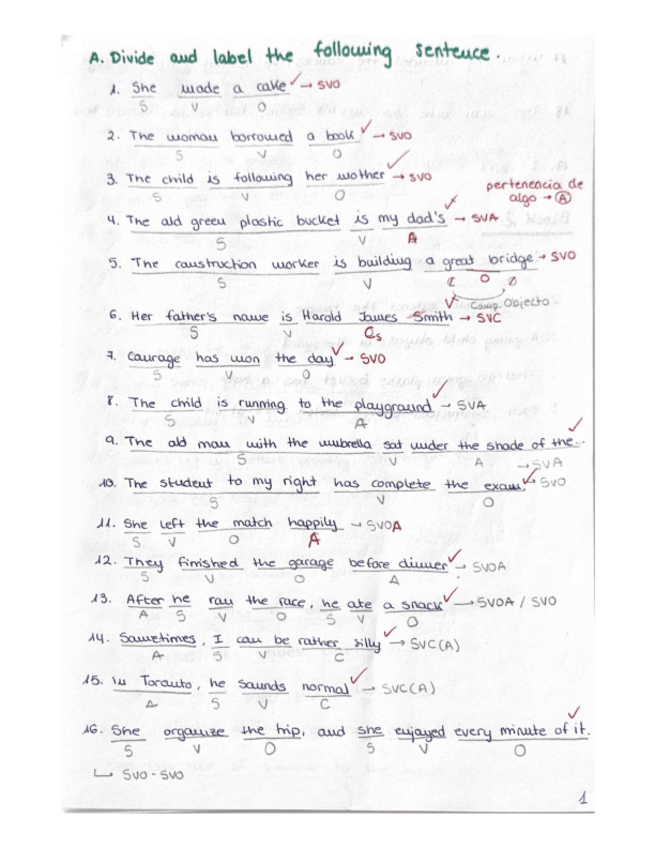 A. Divide and label the following sentence.
1. She made a cake ✓ → SVO
S V O
2. The woman borrowed a book ✓ → SVO
S V O
3. The child is following her mother ✓ → SVO
S V O
pertenencia de
algo → Ⓐ
4. The old green plastic bucket is my dad's ✓ → SVA
S V A
5. The construction worker is building a great bridge → SVO
S V O
Comp. Objecto
6. Her father's name is Harold James Smith → SVC
S V Cs
7. Courage has won the day ✓ → SVO
S V O
8. The child is running to the playground ✓ → SVA
S V A
9. The old man with the umbrella sat under the shade of the... ✓
S V A → SVA
10. The student to my right has complete the exam. ✓ SVO
S V O
11. She left the match happily → SVOA
S V O A
12. They finished the garage before dinner ✓ → SVOA
S V O A
13. After he ran the race, he ate a snack ✓ → SVOA / SVO
A S V O S V O
14. Sometimes, I can be rather silly ✓ → SVC(A)
A S V C
15. In Toronto, he sounds normal ✓ → SVC(A)
A S V C
16. She organize the trip, and she enjoyed every minute of it. ✓
S V O S V O
↳ SVO - SVO
1